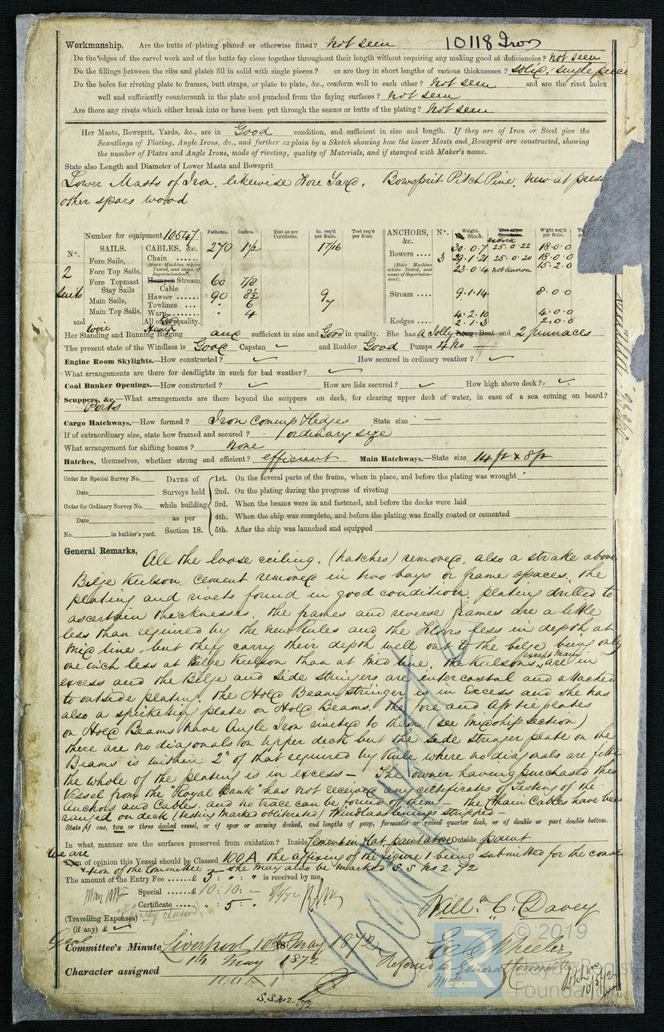 10118 Iron
Workmanship. Are the butts of plating planed or otherwise fitted? Not seen
Do the edges of the carvel work and of the butts fay close together throughout their length without requiring any making good of deficiencies? Not seen
Do the fillings between the ribs and plates fill in solid with single pieces? or are they in short lengths of various thicknesses? solid, single pieces
Do the holes for riveting plate to frames, butt straps, or plate to plate, &c., conform well to each other? Not seen and are the rivet holes
well and sufficiently countersunk in the plate and punched from the faying surfaces? Not seen
Are there any rivets which either break into or have been put through the seams or butts of the plating? Not seen
Her Masts, Bowsprit, Yards, &c., are in Good condition, and sufficient in size and length. If they are of Iron or Steel give the
Scantlings of Plating, Angle Irons, &c., and further explain by a Sketch showing how the lower Masts and Bowsprit are constructed, showing
the number of Plates and Angle Irons, mode of riveting, quality of Materials, and if stamped with Maker's name.
State also Length and Diameter of Lower Masts and Bowsprit
Lower Masts of Iron, likewise Fore Yard. Bowsprit Pitch Pine, New at
other spars wood
Number for equipment 10547
Nº. SAILS. CABLES, &c. Fathoms. Inches. Test as per Certificate. In. req'd per Rule. Test req'd per Rule. ANCHORS, &c. Nº. Weight. Wght req'd per Rule.
Fore Sails, Chain 270 1 1/2 1 7/16 Bowers 3 30.0.7 25.0.22 18.0.0
2 Fore Top Sails, 29.1.21 25.0.20 18.0.0
23.0.4 not known 15.2.0
suits Fore Topmast Stay Sails Stream Cable 60 7/8
Main Sails, Hawser 90 8 1/2 9 Stream 9.1.14 8.0.0
Main Top Sails, Towlines 6 7
Warp 4 4.2.10 4.0.0
and All of quality. Kedges 2.1.3 2.0.0
Her Standing and Running Rigging sufficient in size and Good in quality. She has a Jolly Boat and 2 pinnaces
The present state of the Windlass is Good Capstan ✓ and Rudder Good Pumps 4 No
Engine Room Skylights.—How constructed? ✓ How secured in ordinary weather? ✓
What arrangements are there for deadlights in such for bad weather? ✓
Coal Bunker Openings.—How constructed? ✓ How are lids secured? ✓ How high above deck? ✓
Scuppers, &c.—What arrangements are there beyond the scuppers on deck, for clearing upper deck of water, in case of a sea coming on board?
Ports
Cargo Hatchways.—How formed? Iron Comings & Ledges State size
If of extraordinary size, state how framed and secured? ordinary size
What arrangement for shifting beams? None
Hatches, themselves, whether strong and efficient? efficient Main Hatchways.—State size 14 ft x 8 ft
Order for Special Survey No. DATES of 1st. On the several parts of the frame, when in place, and before the plating was wrought
Date Surveys held 2nd. On the plating during the progress of riveting
Order for Ordinary Survey No. while building 3rd. When the beams were in and fastened, and before the decks were laid
Date as per 4th. When the ship was complete, and before the plating was finally coated or cemented
No. in builder's yard. Section 18. 5th. After the ship was launched and equipped
General Remarks, All the loose ceiling, (hatches) removed, also a strake above
Bilge Keelson, cement removed in two bays or frame spaces, the
plating and rivets found in good condition, plating drilled to
ascertain thicknesses, the frames and reverse frames are a little
less than required by the new Rules and the Floors less in depth at
mid line, but they carry their depth well out to the bilge being only
one inch less at Bilge Keelson than at mid line, the Keelsons are in
excess and the Bilge and Side stringers are intercostal and attached
to outside plating. The Hold Beam Stringer is in Excess and she has
also a spirketting plate on Hold Beams, the Fore and Aft tie plates
on Hold Beams have Angle Iron riveted to them (see Midship Section)
there are no diagonals on upper deck but the side stringer plate on the
Beams is within 2" of that required by Rule where no diagonals are fitted
the whole of the plating is in excess — The owner having purchased this
Vessel from the "Royal Bank" has not received any certificates of Testing of the
Anchors and Cables, and no trace can be found of them — the Chain Cables have been
ranged on deck (testing marks obliterated) Windlass linings stripped —
State if one, two or three decked vessel, or if spar or awning decked, and lengths of poop, forecastle or raised quarter deck, or of double or part double bottom.
In what manner are the surfaces preserved from oxidation? Inside Cement in Flat, paint above Outside paint
We are
of opinion this Vessel should be Classed 100A the affixing of the figure 1 being submitted for the
of the Committee — she may also be marked S.S. No 2. 72
The amount of the Entry Fee £ 5 : : is received by me,
Special £ 10 : 10 : —
Certificate : 5 :
(Travelling Expenses) (if any) £
Willm. C. Davey
Committee's Minute Liverpool 10th May 1872
14 May 1872
Character assigned 100A1
S.S. No 2. 72
Referred to General Committee
© 2019
LR
Foundation